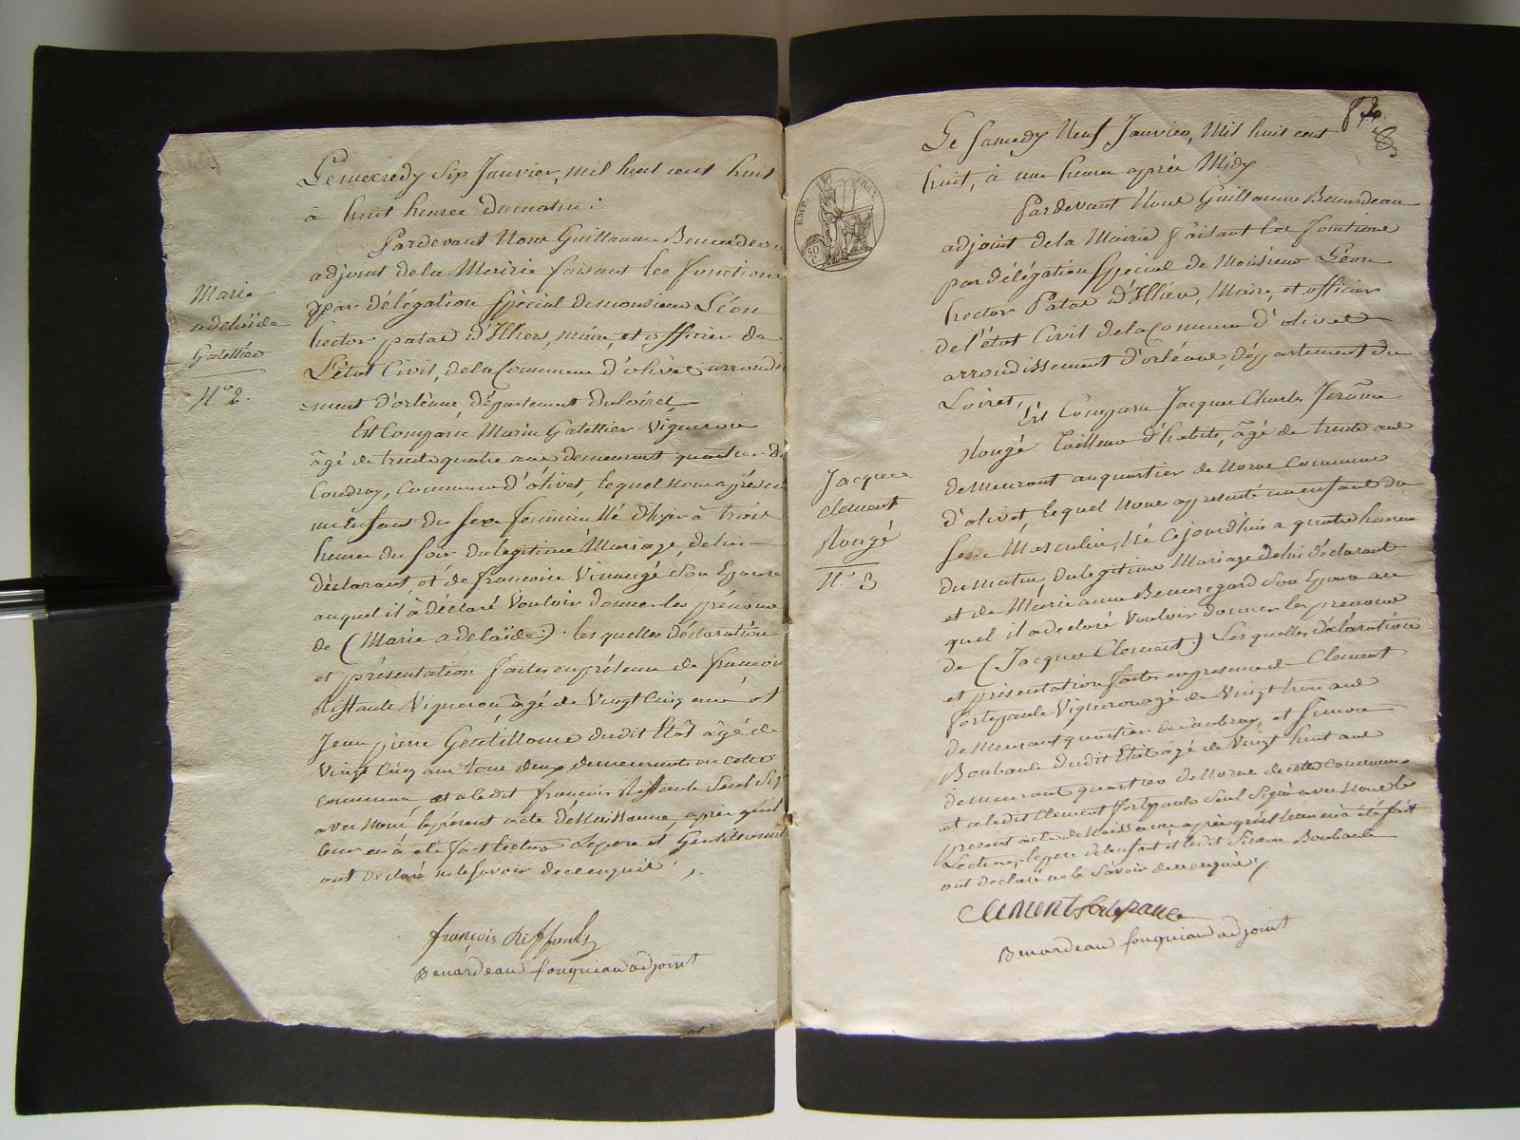 Marie
adelaïde
Gatellier
N.º 2.
Le mecredy Six Janvier, mil huit cent huit
à huit heures du matin :
Pardevant Nous Guillaume Benardeau
adjoint de la Mairie faisant les fonctions
par délégation spécial de monsieur Léon
hector patas d'Illiers, maire, et officier de
L'état Civil, de la Commune d'olivet arrondis
-ment d'orléans, département du loiret,
Est Comparu Marin Gatellier Vigneron
âgé de trente quatre ans demeurant quartier du
Coudray, Commune d'olivet, lequel nous a présenté
un Enfant du Sexe féminin Né d'hyer à trois
heures du soir du légitime Mariage, de lui
déclarant et de françoise Vinauger Son Epouse
auquel il à déclaré Vouloir donner les prénoms
de (Marie adelaïde:). les quelles déclaration
et présentation faites en présence de françois
Riffault Vigneron âgé de Vingt Cinq ans et
Jean pierre Gentilhomme dudit Etât âgé de
Vingt Cinq ans tous deux demeurant en cette
commune et a ledit françois Riffault Seul Sig
avec nous le présent acte de Naissance après qu'il
leur en à été fait lecture Le pere et Gentilhomme
ont déclaré ne le savoir de ce enquis ;.
françois Riffault
Benardeau fouquiau adjoint
Le Samedy Neuf Janvier, Mil huit cent
huit, à une heure après Midy
Pardevant Nous Guillaume Benardeau
adjoint de la Mairie faisant les fonctions
par délégation Spécial de Monsieur Léon
hector Patas D'Illiers, Maire, et officier
de l'état Civil de la Commune d'olivet
arrondissement d'orléans, département du
Loiret,
Est Comparu Jacques Charles Jerôme
Rougé Tailleur d'habits, âgé de trente ans
demeurant au quartier de Noras Commune
d'olivet, lequel nous a présenté un enfant du
Sexe Masculin, Né Cejourd'hui a quatre heures
du matin, du légitime Mariage de lui déclarant
et de Marie anne Beauregard Son Epouse au
quel il a declaré Vouloir donner les prenoms
de (Jacques Clement:) Les quelles déclaration
et présentation faites en presence de Clement
fortepaule Vigneron agé de Vingt trois ans
demeurant quartier et Simon
Boubault dudit Etât agé de Vingt huit ans
demeurant quartier de Noras de cette Commune
et a ledit Clement fortepaule Seul Signé avec nous le
present acte de Naissance après qu'il leur en à été fait
Lecture, le pere de lenfant et ledit Simon Boubault
ont declaré ne le Sávoir de ce enquis ;
Jacques
clement
Rougé
N.º 3
Clement fortepaule
Benardeau fouquiau adjoint